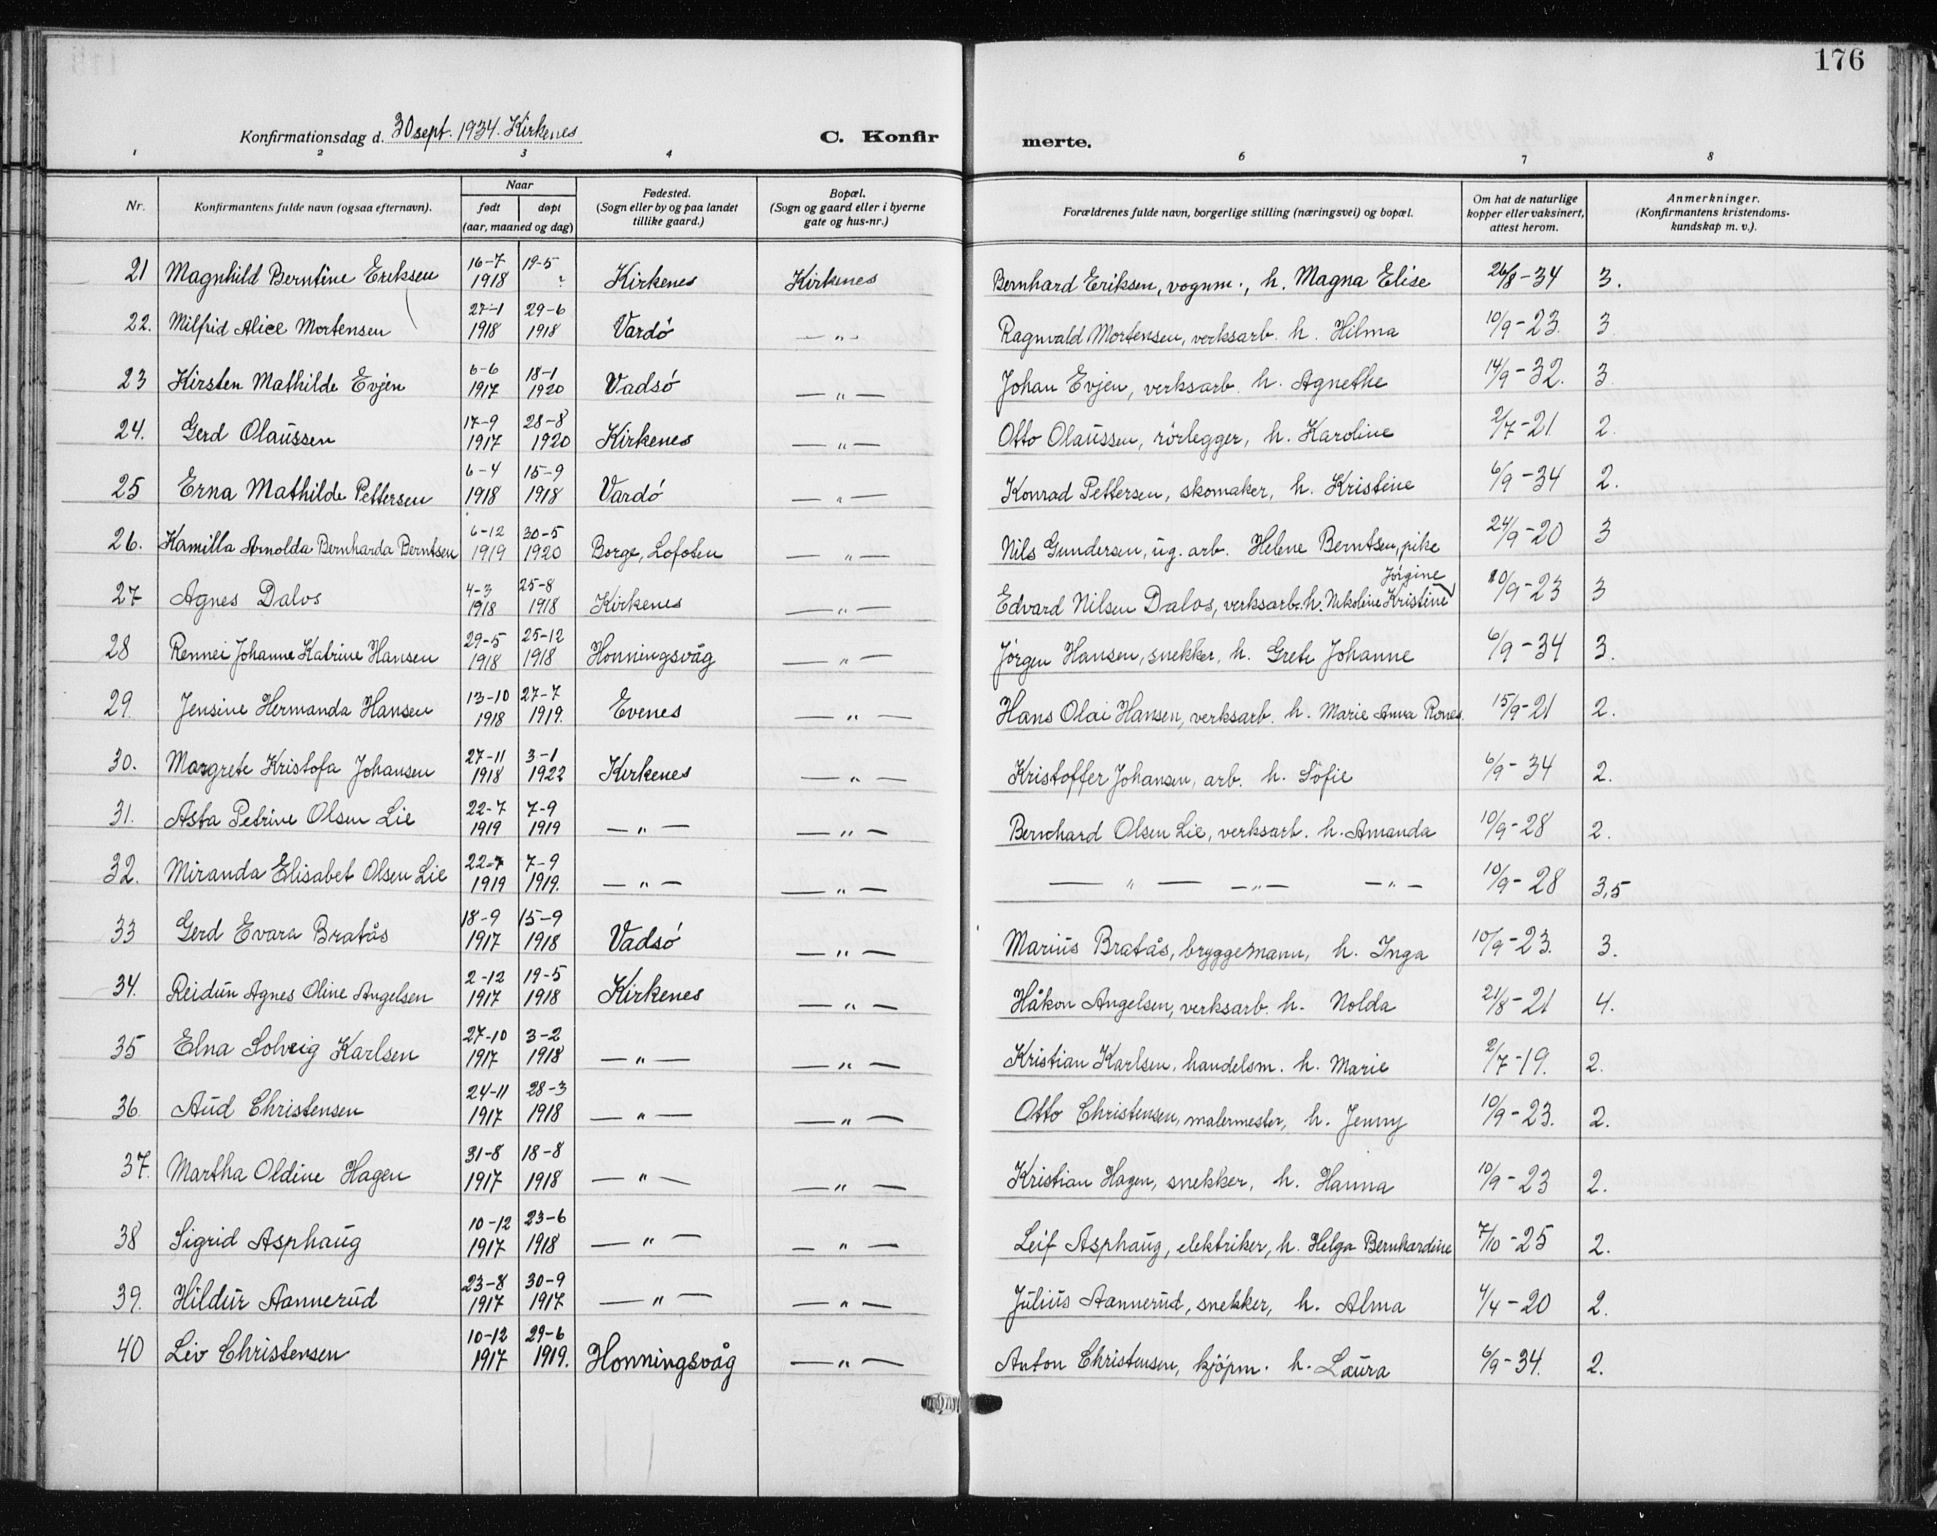 176
Konfirmationsdag d. 30 sept. 1934. Kirkenes C. Konfir merte.
1 2 3 4 6 7 8
Nr. Konfirmantens fulde navn (ogsaa efternavn). Naar født døpt (aar, maaned og dag) Fødested. (Sogn eller by og paa landet tillike gaard.) Bopæl. (Sogn og gaard eller i byerne gate og hus-nr.) Forældrenes fulde navn, borgerlige stilling (næringsvei) og bopæl. Om hat de naturlige kopper eller vaksinert, attest herom. Anmerkninger. (Konfirmantens kristendoms-kundskap m. v.).
21 Magnhild Berntine Eriksen 16-7 1918 19-5 Kirkenes Kirkenes Bernhard Eriksen, vognm., h. Magna Elise 26/8-34 3.
22. Milfrid Alice Mortensen 27-1 1918 29-6 1918 Vardö — " — Ragnvald Mortensen, verksarb. h. Hilma 10/9-23. 3.
23 Kirsten Mathilde Evjen 6-6 1917 18-1 1920 Vadsö — " — Johan Evjen, verksarb. h. Agnethe 14/9-32. 3.
24. Gerd Olaussen 17-9 1917 28-8 1920 Kirkenes — " — Otto Olaussen, rörlegger, h. Karoline 2/7-21 2.
25 Erna Mathilde Pettersen 6-4 1918 15-9 1918 Vardö — " — Konrad Pettersen, skomaker, h. Kristine 6/9-34 2.
26. Kamilla Arnolda Bernharda Berntsen 6-12 1919 30-5 1920 Borge, Lofoten — " — Nils Gundersen, ug. arb. Helene Berntsen, pike 24/9-20 3
27 Agnes Dalos 4-3 1918 25-8 1918 Kirkenes — " — Edvard Nilsen Dalos, verksarb. h. Nikoline Kristine Jörgine 10/9-23 3
28 Rennei Johanne Katrine Hansen 29-5 1918 25-12 1918 Honningsvåg — " — Jörgen Hansen, snekker, h. Grete Johanne 6/9-34 3.
29. Jensine Hermanda Hansen 13-10 1918 27-7 1919. Evenes — " — Hans Olai Hansen, verksarb. h. Marie Anna 15/9-21 2.
30. Margrete Kristofa Johansen 27-11 1918 3-1 1922 Kirkenes — " — Kristoffer Johansen, arb. h. Sofie 6/9-34 2.
31. Asta Petrine Olsen Lie 22-7 1919 7-9 1919 — " — — " — Bernhard Olsen Lie, verksarb. h. Amanda 10/9-28 2.
32. Miranda Elisabet Olsen Lie 22-7 1919 7-9 1919. — " — — " — — " — — " — — " — 10/9-28 3,5
33 Gerd Evara Bratås 18-9 1917 15-9 1918 Vadsö — " — Marius Bratås, bryggemann, h. Inga 10/9-23. 3.
34. Reidun Agnes Oline Angelsen 2-12 1917 19-5 1918 Kirkenes — " — Håkon Angelsen, verksarb. h. Nolda 21/8-21 4.
35 Elna Solveig Karlsen 27-10 1917 3-2 1918 — " — — " — Kristian Karlsen, handelsm. h. Marie 2/7-19. 2.
36 Aud Christensen 24-11 1917 28-3 1918 — " — — " — Otto Christensen, malermester, h. Jenny 10/9-23. 2.
37. Martha Oldine Hagen 31-8 1917 18-8 1918 — " — — " — Kristian Hagen, snekker, h. Hanna 10/9-23 2.
38 Sigrid Asphaug 10-12 1917 23-6 1918 — " — — " — Leif Asphaug, elektriker, h. Helga Bernhardine 7/10-25 2.
39. Hildur Aannerud 23-8 1917 30-9 1917 — " — — " — Julius Aannerud, snekker, h. Alma 4/4-20 2.
40 Liv Christensen 10-12 1917 29-6 1919. Honningsvåg — " — Anton Christensen, kjöpm. h. Laura 6/9-34. 2.